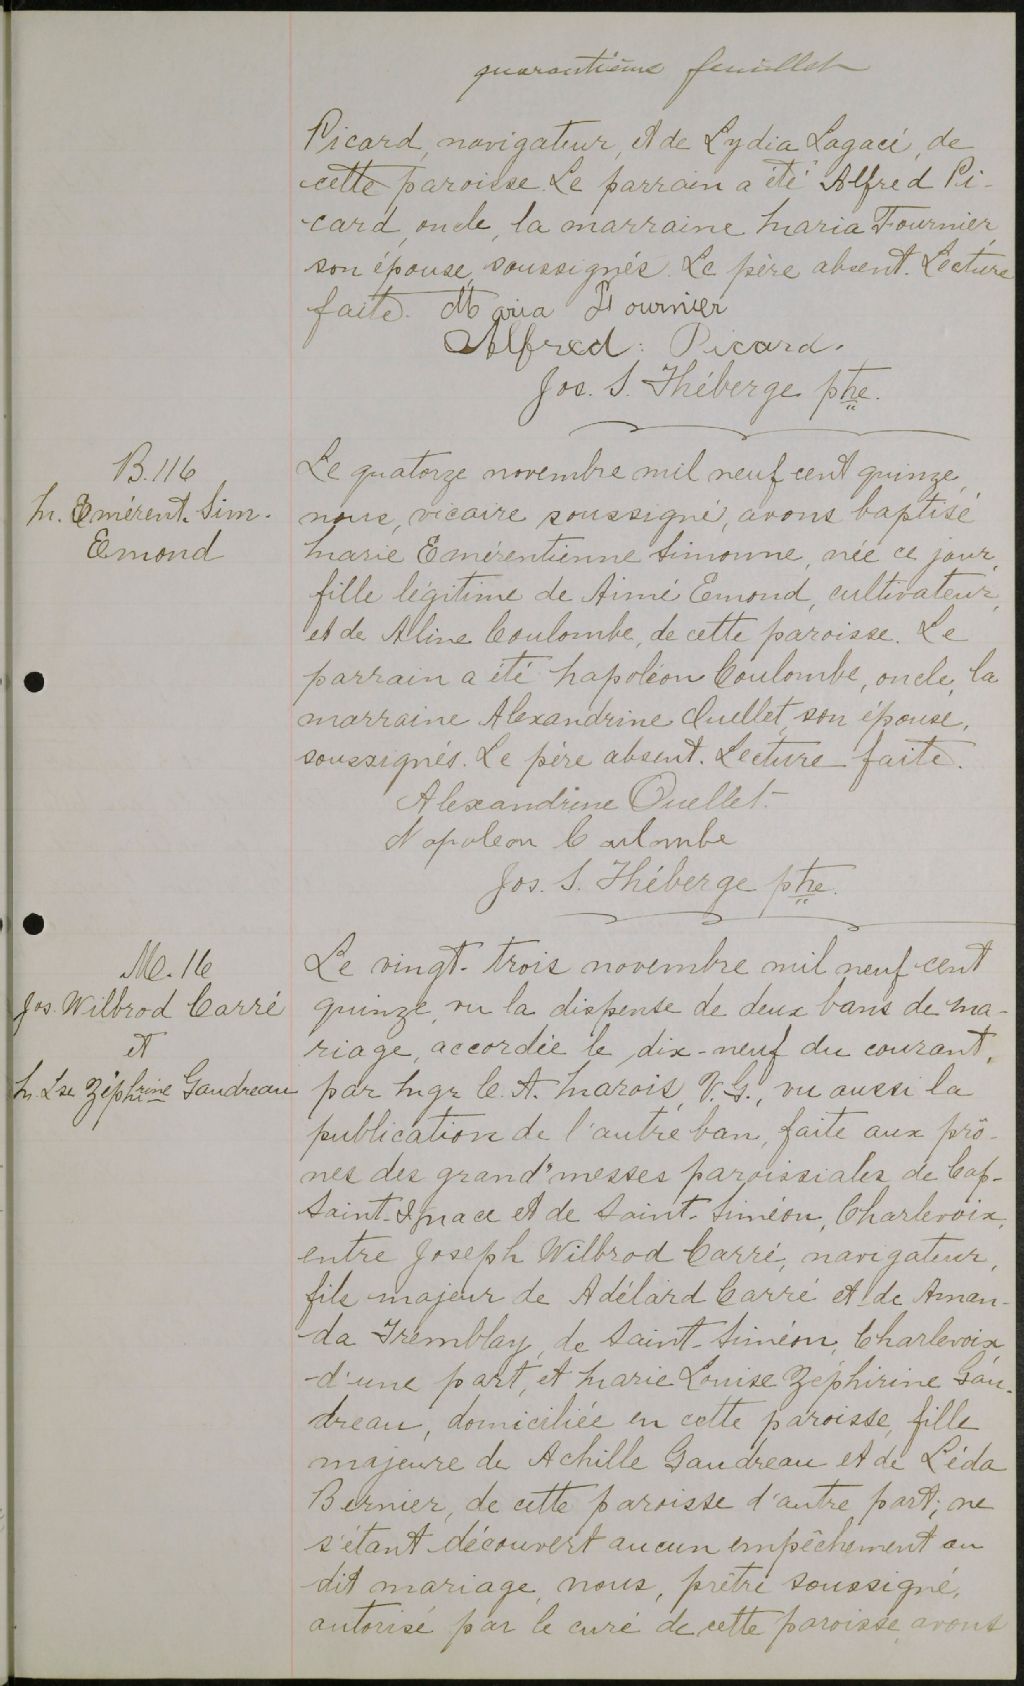 quarantième feuillet
Picard, navigateur, et de Lydia Lagacé, de
cette paroisse. Le parrain a été Alfred Pi-
card, oncle, la marraine Maria Fournier,
son épouse, soussignés. Le père absent. Lecture
faite. Maria Fournier
Alfred Picard.
Jos. S. Théberge ptre.
B. 116
M. Emérent. Sim.
Emond
Le quatorze novembre mil neuf cent quinze,
nous, vicaire soussigné, avons baptisé
Marie Emérentienne Simonne, née ce jour,
fille légitime de Aimé Emond, cultivateur,
et de Aline Coulombe, de cette paroisse. Le
parrain a été Napoléon Coulombe, oncle, la
marraine Alexandrine Ouellet, son épouse,
soussignés. Le père absent. Lecture faite.
Alexandrine Ouellet
Napoleon Coulombe
Jos. S. Théberge ptre.
M. 16
Jos. Wilbrod Carré
et
M. Lse Zéphrine Gaudreau
Le vingt-trois novembre mil neuf cent
quinze, vu la dispense de deux bans de ma-
riage, accordée le dix-neuf du courant,
par Mgr C. A. Marois, V. G., vu aussi la
publication de l'autre ban, faite aux prô-
nes des grand'messes paroissiales de Cap-
Saint-Ignace et de Saint-Siméon, Charlevoix,
entre Joseph Wilbrod Carré, navigateur,
fils majeur de Adélard Carré et de Aman-
da Tremblay, de Saint-Siméon, Charlevoix
d'une part, et Marie Louise Zéphirine Gau-
dreau, domiciliée en cette paroisse, fille
majeure de Achille Gaudreau et de Léda
Bernier, de cette paroisse d'autre part; ne
s'étant découvert aucun empêchement au
dit mariage, nous, prêtre soussigné,
autorisé par le curé de cette paroisse, avons